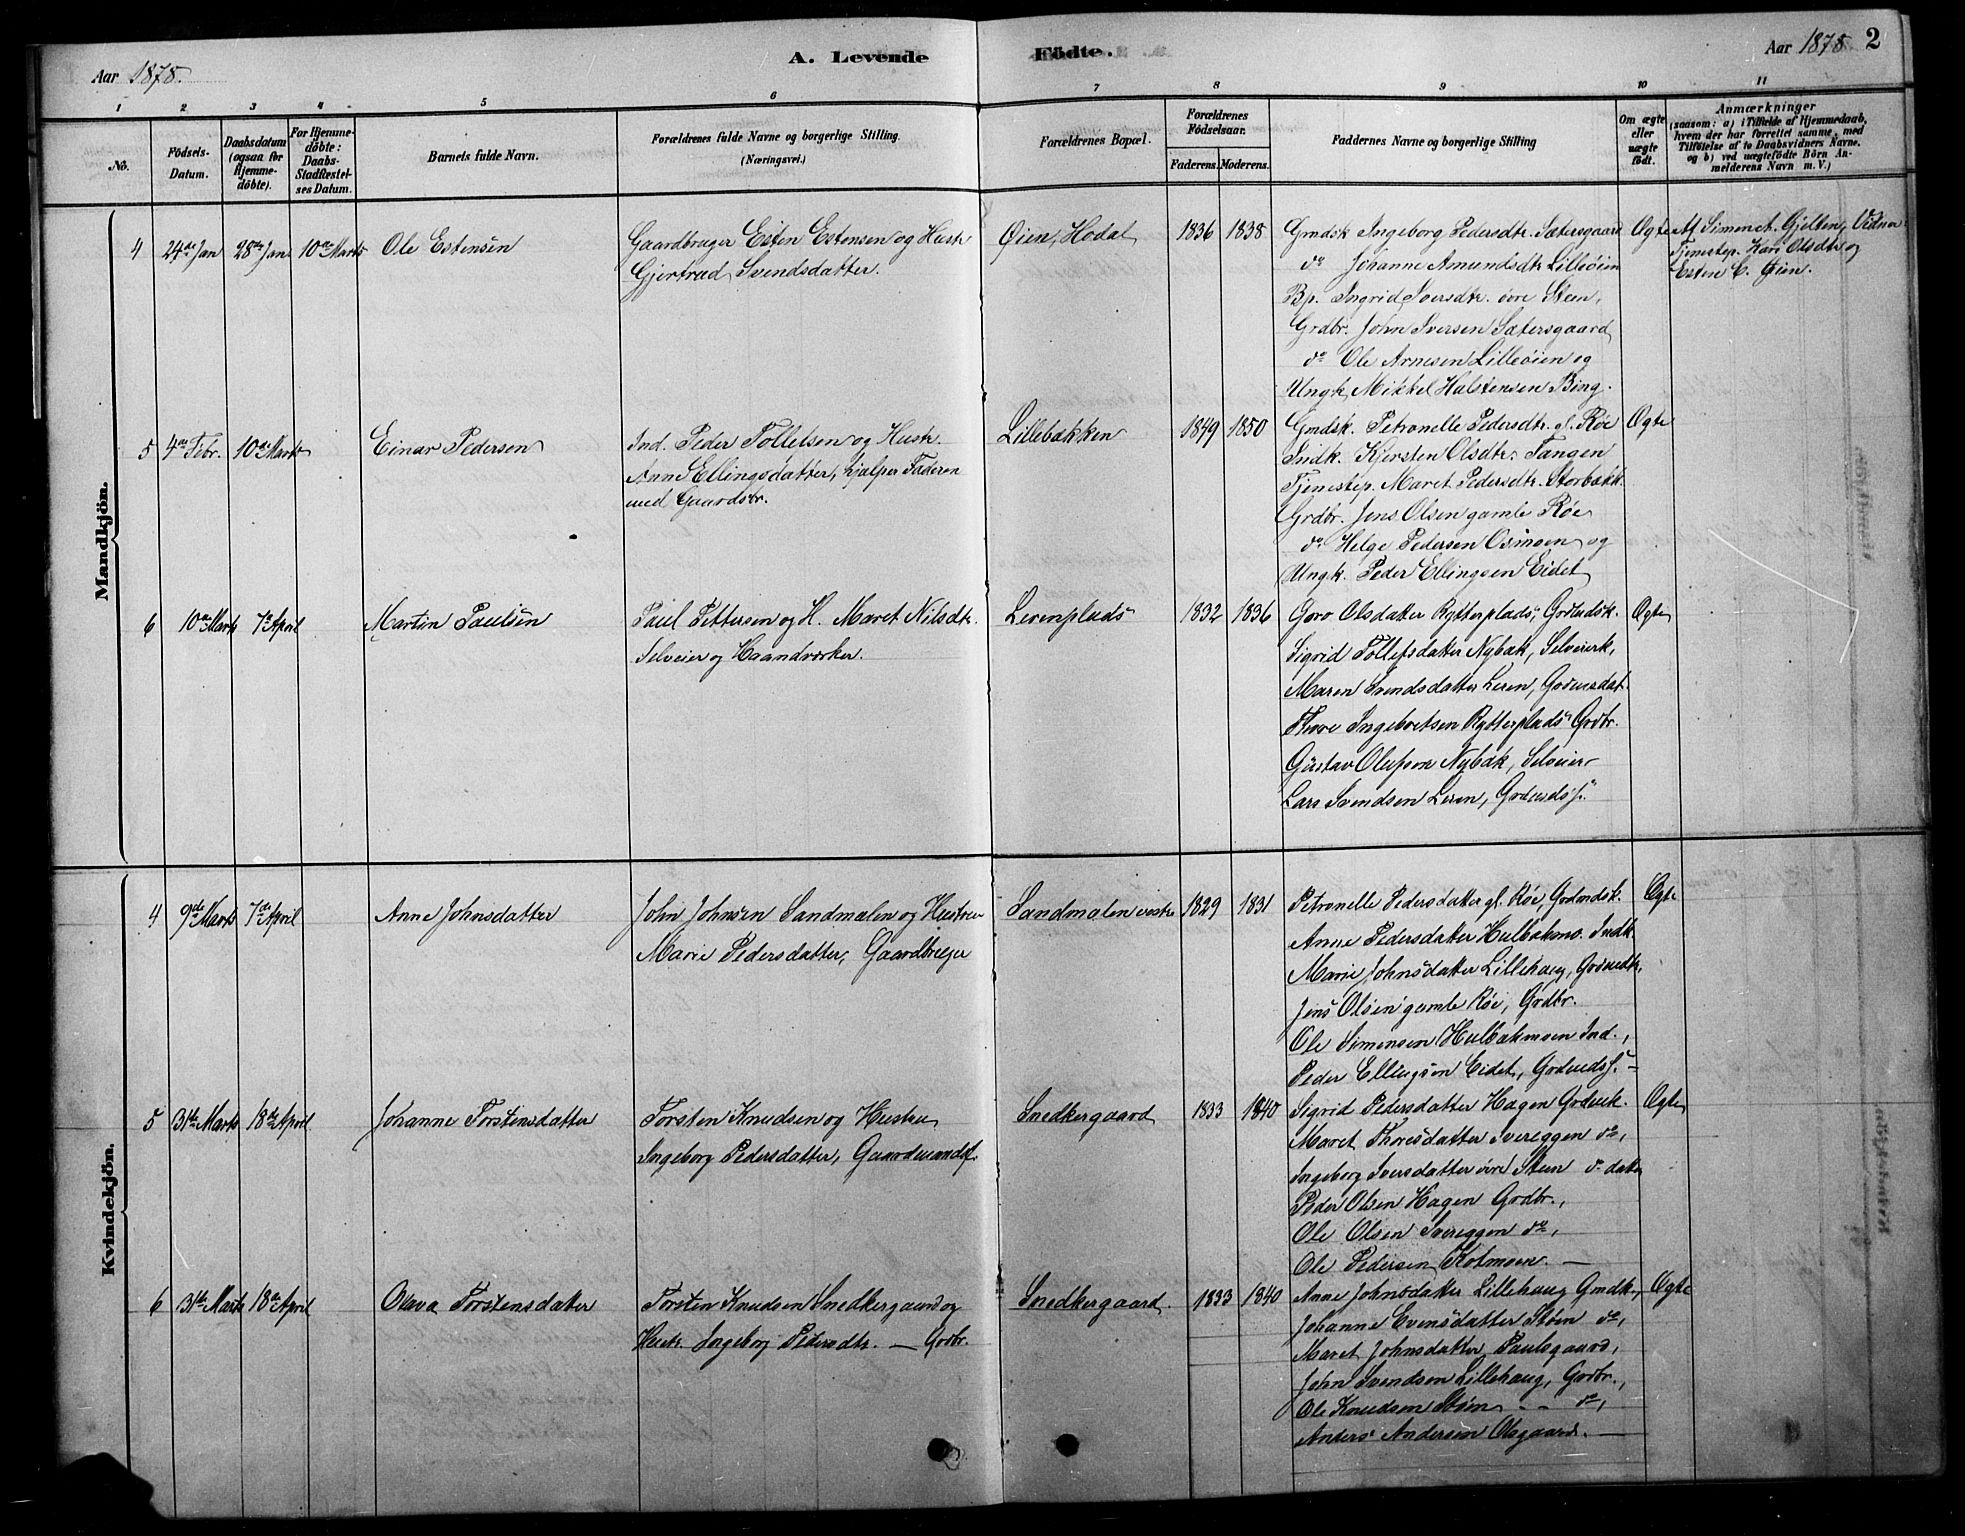 Aar 1878.
A. Levende Födte.
Aar 1878. 2
1 2 3 4 5 6 7 8 9 10 11
No.
Födsels-Datum.
Daabsdatum (ogsaa for Hjemme-döbte).
For Hjemme-döbte: Daabs-Stadfæstel-ses Datum.
Barnets fulde Navn.
Forældrenes fulde Navne og borgerlige Stilling.
(Næringsvei.)
Forældrenes Bopæl.
Forældrenes Födselsaar.
Faderens. Moderens.
Faddernes Navne og borgerlige Stilling
Om ægte eller uægte födt.
Anmærkninger
(saasom: a) i Tilfælde af Hjemmedaab,
hvem der har forrettet samme, med
Tilföielse af to Daabsvidners Navne.
og b) ved uægtefödte Börn An-
melderens Navn m.V.)
Mandkjön.
4 24de Jan 28de Jan 10de Marts Ole Estensen
Gaardbruger Esten Estensen og Hustr
Gjertrud Svendsdatter.
Øien, Hodal 1836 1838
Gmdsk Ingeborg Pedersdtr. Sætersgaard
do Johanne Amundsdtr Lilleøien
Bp. Ingrid Iversdtr. øvre Steen,
Grdbr. John Iversen Sætersgaard
do Ole Arnesen Lilleøien og
Ungk. Mikkel Halstensen Bing.
Ægte
Af Simen t. Gjelten, Vidner
Tjenestep. Kari Olsdtr og
Esten E. Øien.
5 4de Febr. 10de Marts Einar Pedersen
Ind. Peder Tollefsen og Hustr.
Anne Ellingsdatter, hjælper Faderen
med Gaardsbr.
Lillebakken 1849 1850
Gmdsk. Petronelle Pedersdtr. gl. Røe
Indk. Kjersten Olsdtr. Tangen
Tjenestep. Maret Pedersdtr. Storbakk.
Grdbr. Jens Olsen gamle Røe
do Helge Pedersen Osmoen og
Ungk. Peder Ellingsen Eidet
Ægte
6 10de Marts 7de April Martin Paulsen
Paul Pettersen og H. Maret Nilsdtr.
Selveier og Haandværker.
Lerenplads 1832 1836
Goro Olsdatter Rytterplads, Grdmdsk.
Sigrid Tollefsdatter Nybak, Selveierk,
Maren Svendsdatter Leren, Grdmdsdat.
Thore Ingebretsen Rytterplads Grdbr.
Gustav Olufsen Nybak, Selveier
Lars Svendsen Leren, Grdmdss.
Ægte
Kvindekjön.
4 9de Marts 7de April Anne Johnsdatter
John Johnsen Sandmalen og Hustru
Marie Pedersdatter, Gaardbruger
Sandmalen vestre 1829 1831
Petronelle Pedersdatter gl. Røe, Grdmdsk.
Anne Pedersdatter Hulbakmo. Indk.
Marie Johnsdatter Lillehaug, Grdmdk,
Jens Olsen gamle Røe, Grdbr.
Ole Simensen Hulbakmoen Ind.,
Peder Ellingsen Eidet, Grdmdss.
Ægte
5 31te Marts 18de April Johanne Torstensdatter
Torsten Knudsen og Hustru
Ingeborg Pedersdatter, Gaardmandsf.
Snedkergaard 1833 1840
Sigrid Pedersdatter Hagen Grdmk.
Maret Thoresdatter Svereggen do,
Ingeborg Iversdatter øvre Steen do datter
Peder Olsen Hagen Grdbr.,
Ole Olsen Svereggen do,
Ole Pedersen Kotmoen. —
Ægte
6 31te Marts 18de April Olava Torstensdatter
Torsten Knudsen Snedkergaard og
Hustr. Ingeborg Pedersdtr. — Grdbr.
Snedkergaard. 1833 1840
Anne Johnsdatter Lillehaug Gmdk.,
Johanne Evensdatter Støen do,
Maret Johnsdatter Paulsgaard,
John Svendsen Lillehaug, Grdbr.,
Ole Knudsen Støen — do,
Anders Andersen Olsgaard. —
Ægte